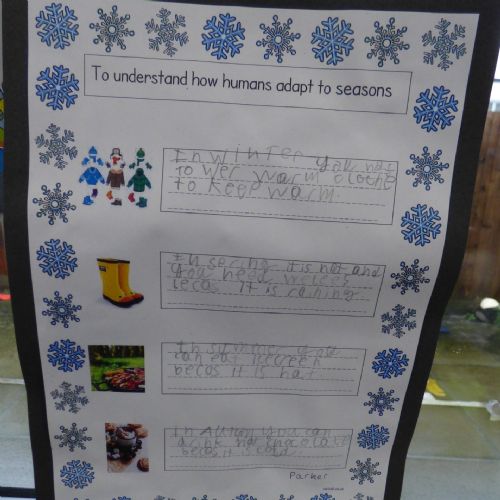 To understand how humans adapt to seasons
In winter you
to wer warm
to keep warm.
In it is hot and
you need
becas it is raining
In summer
can eat
becos it is hot
In you can
drink hot chocolate
becos it is cold
Parker